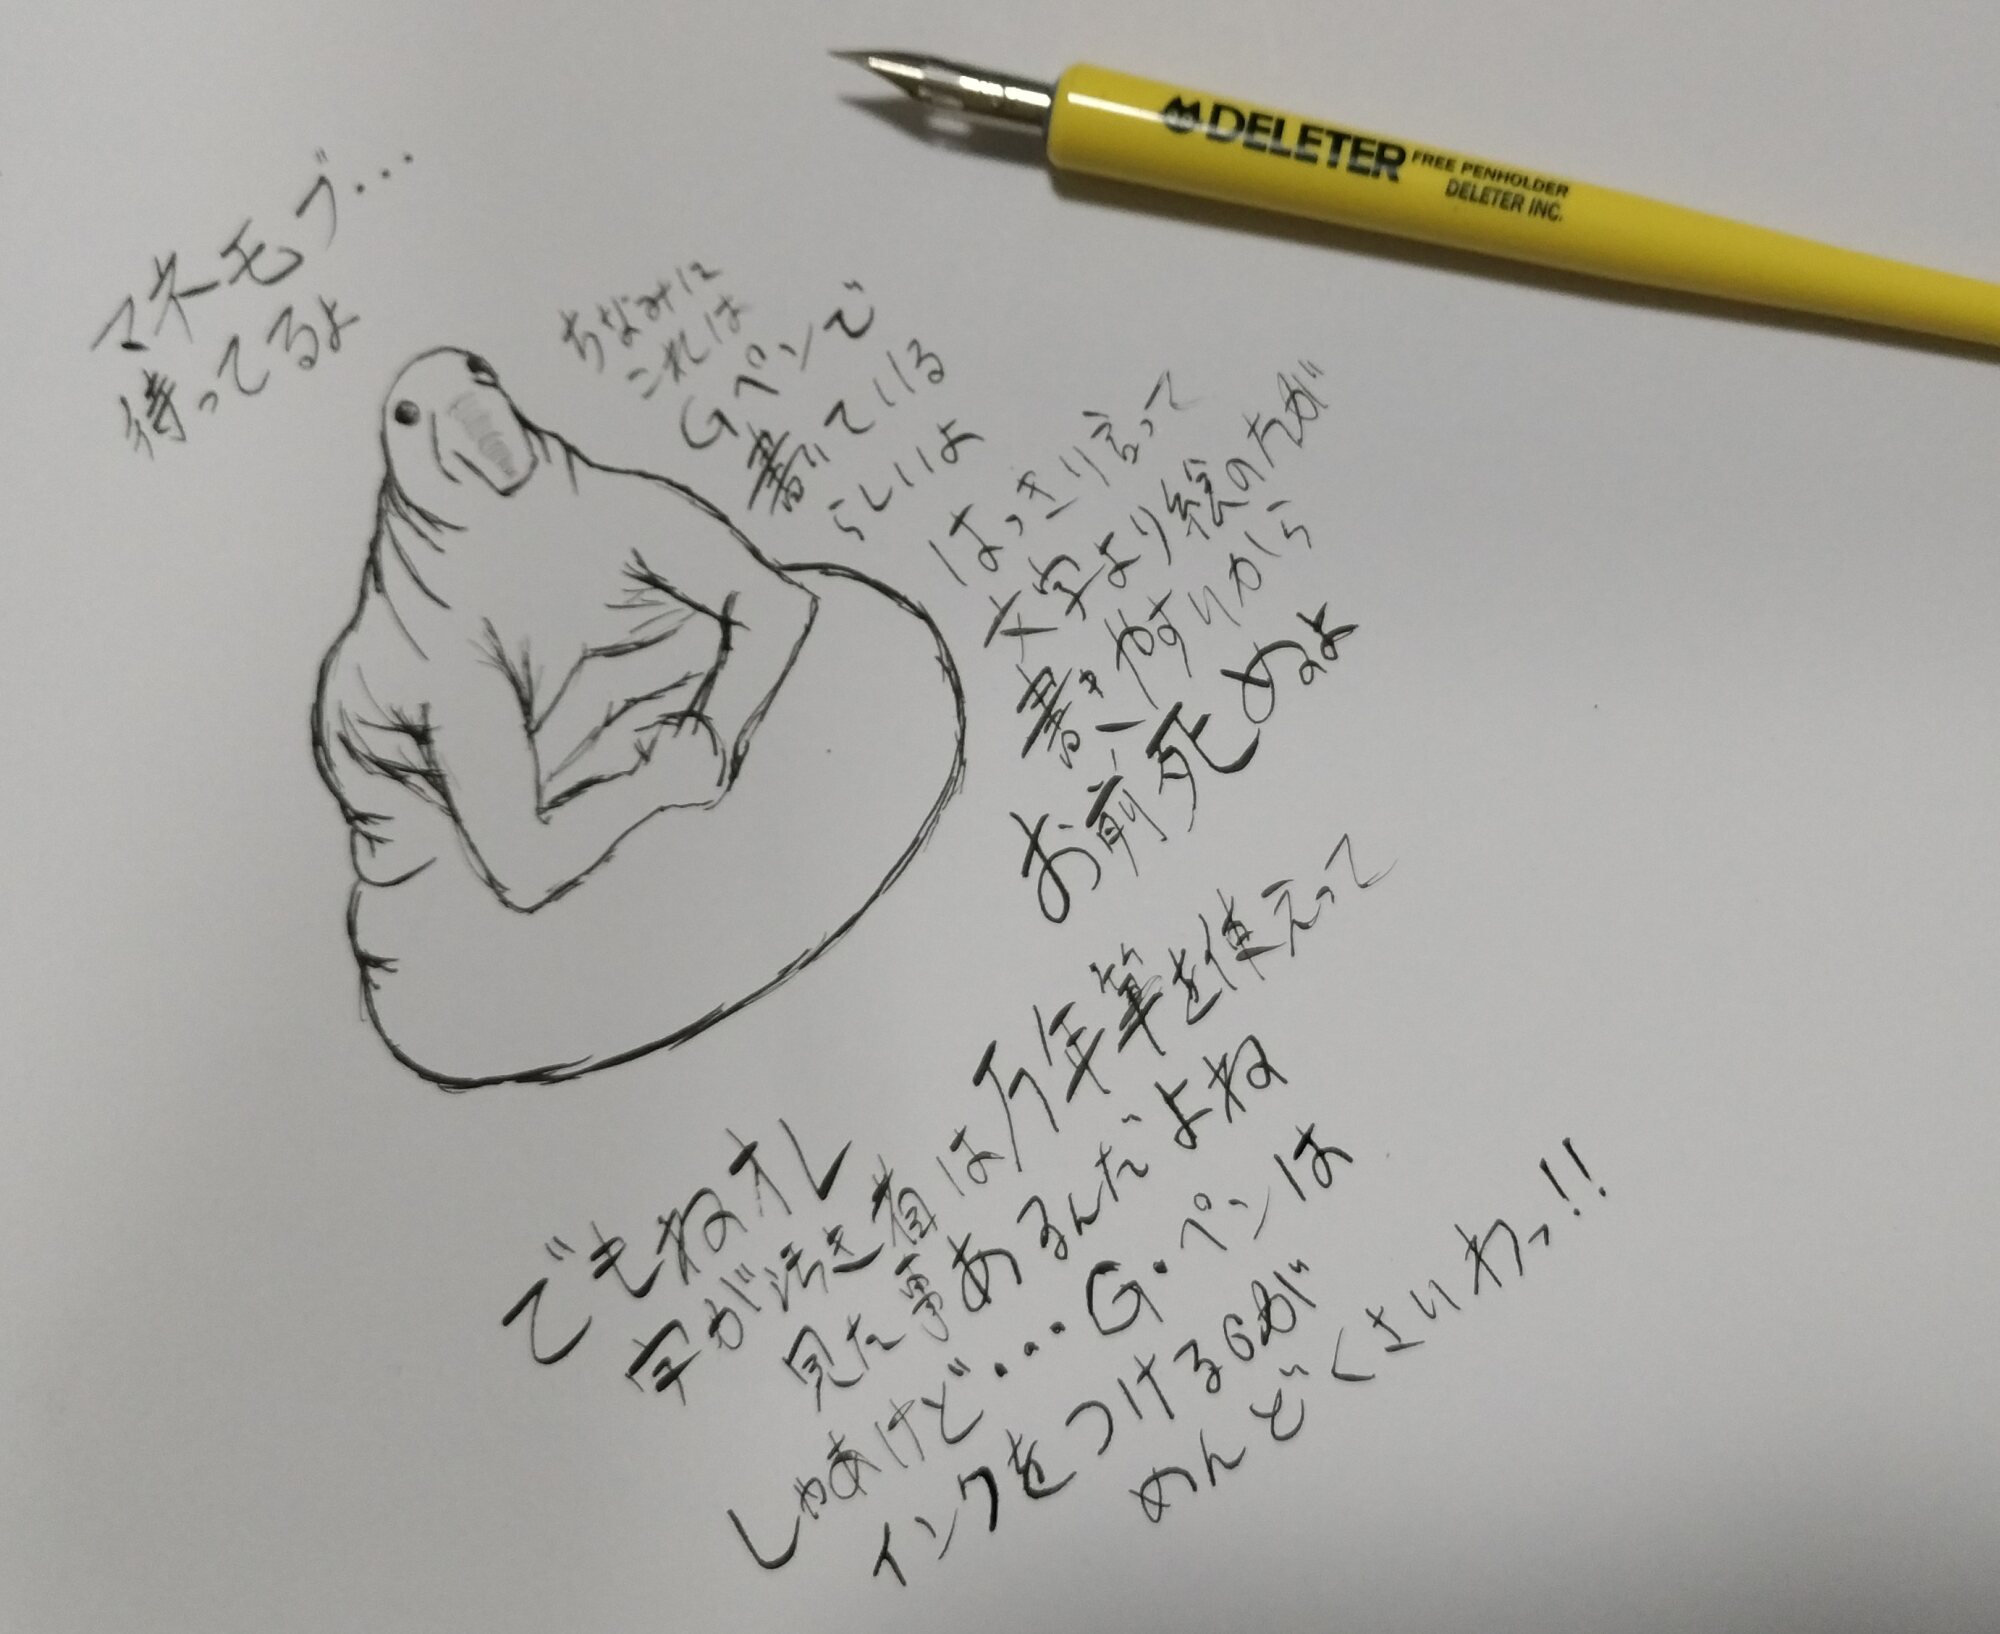 DELETER FREE PENHOLDER
DELETER INC.
マネーモブ…
待ってるよ
ちなみに
これは
Gペンで
書いている
らしいよ
はっきり言って
文字より絵の方が
書きやすいから
お前死ぬよ
でもねオレ
字が汚き者は万年筆を使えって
見た事あるんだよね
しゃあけど…G・ペンは
インクをつけるのが
めんどくさいわっ!!